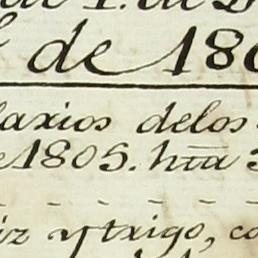 de 1. de
de 180
laxios delos
1805. hta 3
iz y trigo, co